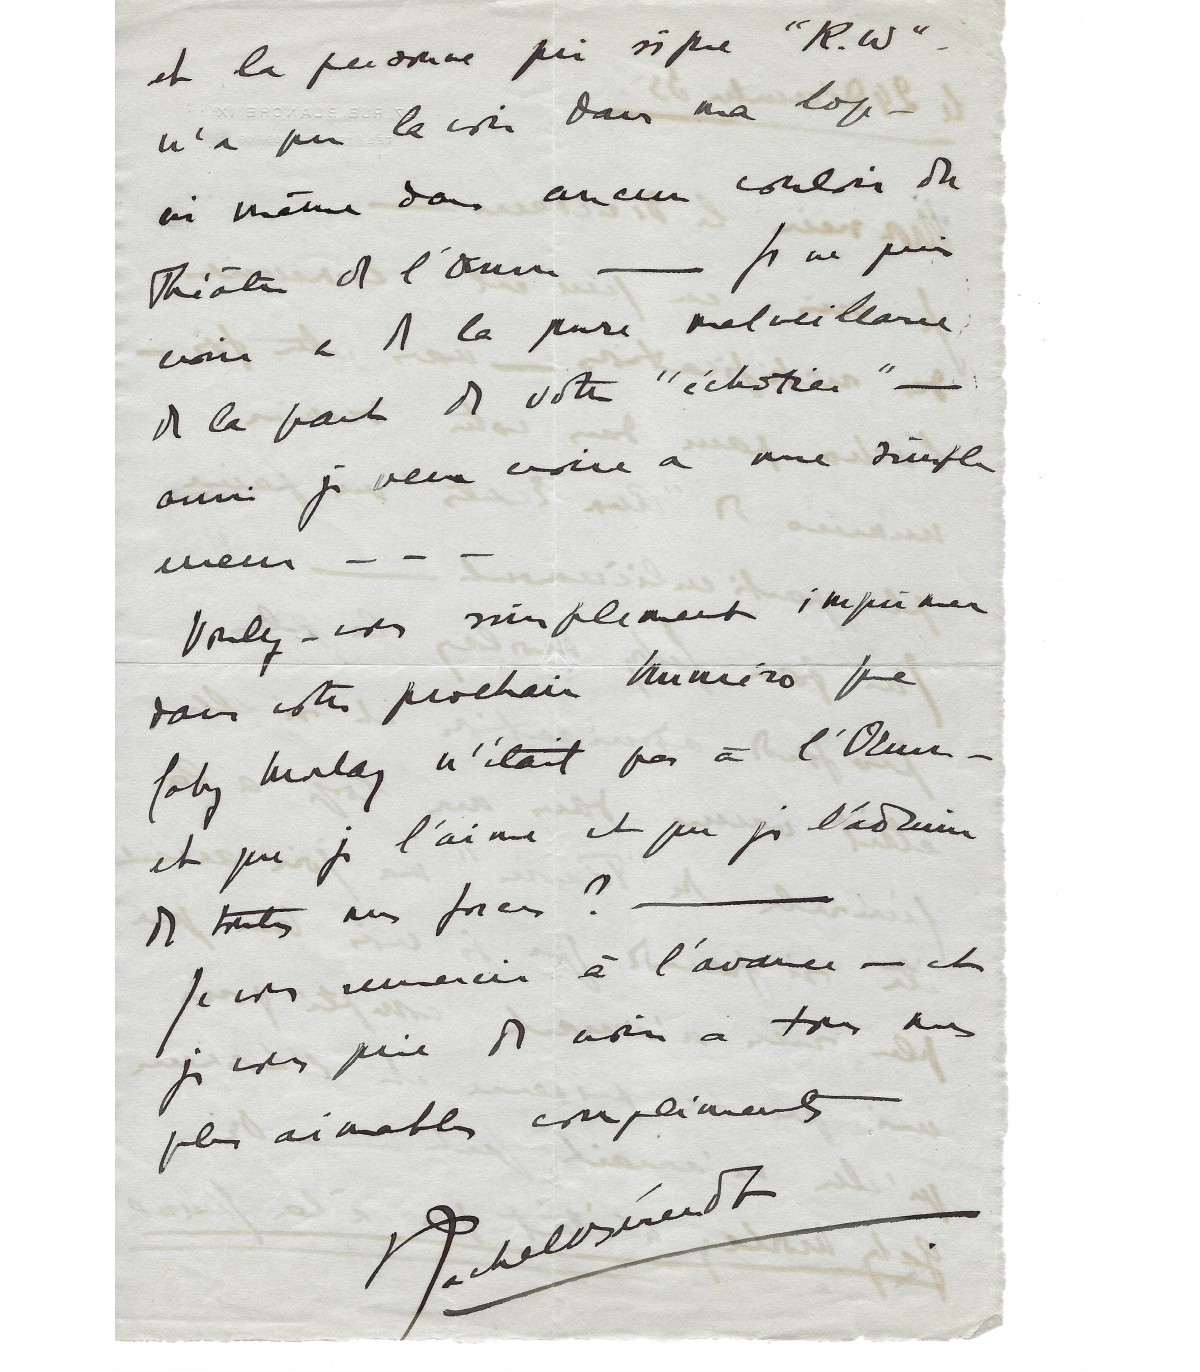 et la personne qui signe "R.W" -
n'a pu la voir dans ma loge -
ni même dans aucun couloir du
Théâtre de l'Œuvre — Je ne puis
croire à de la pure malveillance
de la part de votre "échotier" —
aussi je veux croire à une simple
erreur - - -
Voulez-vous simplement imprimer
dans votre prochain Numéro que
Gaby Morlay n'était pas à l'Œuvre -
et que je l'aime et que je l'admire
de toutes mes forces ? —
Je vous remercie à l'avance — et
je vous prie de croire à tous mes
plus aimables compliments —
Rachel Berendt